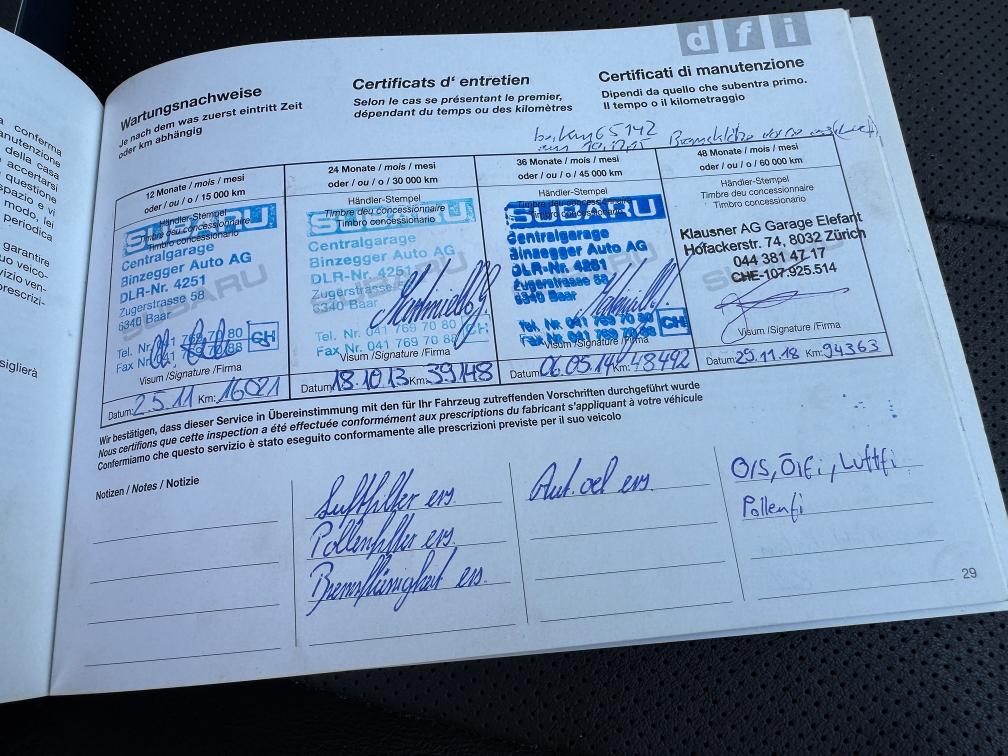 a conferma
anutenzione
della casa
accertarsi
questione
spazio e vi
modo, lei
periodica
garantire
suo veico-
vizio ven-
prescrizi-
siglierà
d f i
Wartungsnachweise
Je nach dem was zuerst eintritt Zeit
oder km abhängig
Certificats d' entretien
Selon le cas se présentant le premier,
dépendant du temps ou des kilomètres
Certificati di manutenzione
Dipendi da quello che subentra primo.
Il tempo o il kilometraggio
bei km 65142
12 Monate / mois / mesi
oder / ou / o / 15 000 km
Händler-Stempel
Timbre deu concessionnaire
Timbro concessionario
SUBARU
Centralgarage
Binzegger Auto AG
DLR-Nr. 4251
Zugerstrasse 58
6340 Baar
SUBARU
Tel. Nr. 041 769 70 80
Fax Nr. 041 769 70 88
CH
Visum /Signature /Firma
Datum: 2.5.11 Km: 16021
24 Monate / mois / mesi
oder / ou / o / 30 000 km
Händler-Stempel
Timbre deu concessionnaire
Timbro concessionario
SUBARU
Centralgarage
Binzegger Auto AG
DLR-Nr. 4251
Zugerstrasse 58
6340 Baar
SUBARU
Tel. Nr. 041 769 70 80
Fax Nr. 041 769 70 88
CH
Visum /Signature /Firma
Datum: 18.10.13 Km: 39148
36 Monate / mois / mesi
oder / ou / o / 45 000 km
Händler-Stempel
Timbre deu concessionnaire
Timbro concessionario
SUBARU
Centralgarage
Binzegger Auto AG
DLR-Nr. 4251
Zugerstrasse 58
6340 Baar
Tel. Nr. 041 769 70 80
Fax Nr. 041 769 70 88
CH
Visum /Signature /Firma
Datum: 06.05.14 Km: 48492
48 Monate / mois / mesi
oder / ou / o / 60 000 km
Händler-Stempel
Timbre deu concessionnaire
Timbro concessionario
Klausner AG Garage Elefant
Hofackerstr. 74, 8032 Zürich
044 381 47 17
CHE-107.925.514
SUBARU
Visum /Signature /Firma
Datum: 29.11.18 Km: 94363
Wir bestätigen, dass dieser Service in Übereinstimmung mit den für Ihr Fahrzeug zutreffenden Vorschriften durchgeführt wurde
Nous certifions que cette inspection a été effectuée conformément aux prescriptions du fabricant s'appliquant à votre véhicule
Confermiamo che questo servizio è stato eseguito conformamente alle prescrizioni previste per il suo veicolo
Notizen / Notes / Notizie
Luftfilter ers.
Pollenfilter ers.
Bremsflüssigkeit ers.
Aut.oel ers.
O/S, Ölfi, Luftfi
Pollenfi
29